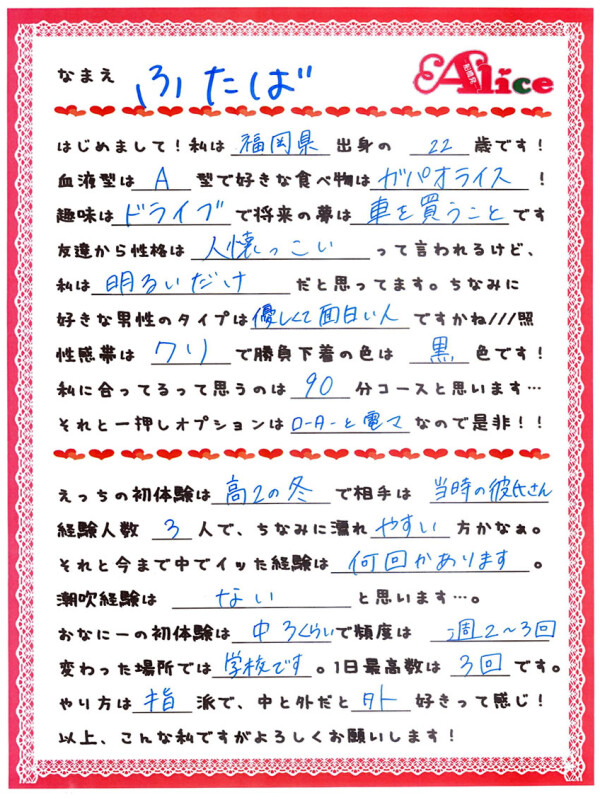 なまえ ふたば
船橋発 Alice
はじめまして!私は 福岡県 出身の 22 歳です!
血液型は A 型で好きな食べ物は ガパオライス !
趣味は ドライブ で将来の夢は 車を買うこと です
友達から性格は 人懐っこい って言われるけど、
私は 明るいだけ だと思ってます。ちなみに
好きな男性のタイプは 優しくて面白い人 ですかね///照
性感帯は クリ で勝負下着の色は 黒 色です!
私に合ってるって思うのは 90 分コースと思います…
それと一押しオプションは ローターと電マ なので是非!!
経験人数 3 人で、ちなみに濡れ やすい 方かなぁ。
それと今まで中でイッた経験は 何回かあります 。
潮吹経験は ない と思います…。
やり方は 指 派で、中と外だと 外 好きって感じ!
以上、こんな私ですがよろしくお願いします!